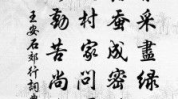 采盡绿
蚕成密
村家問
勤苦尚
王安石郊行詞